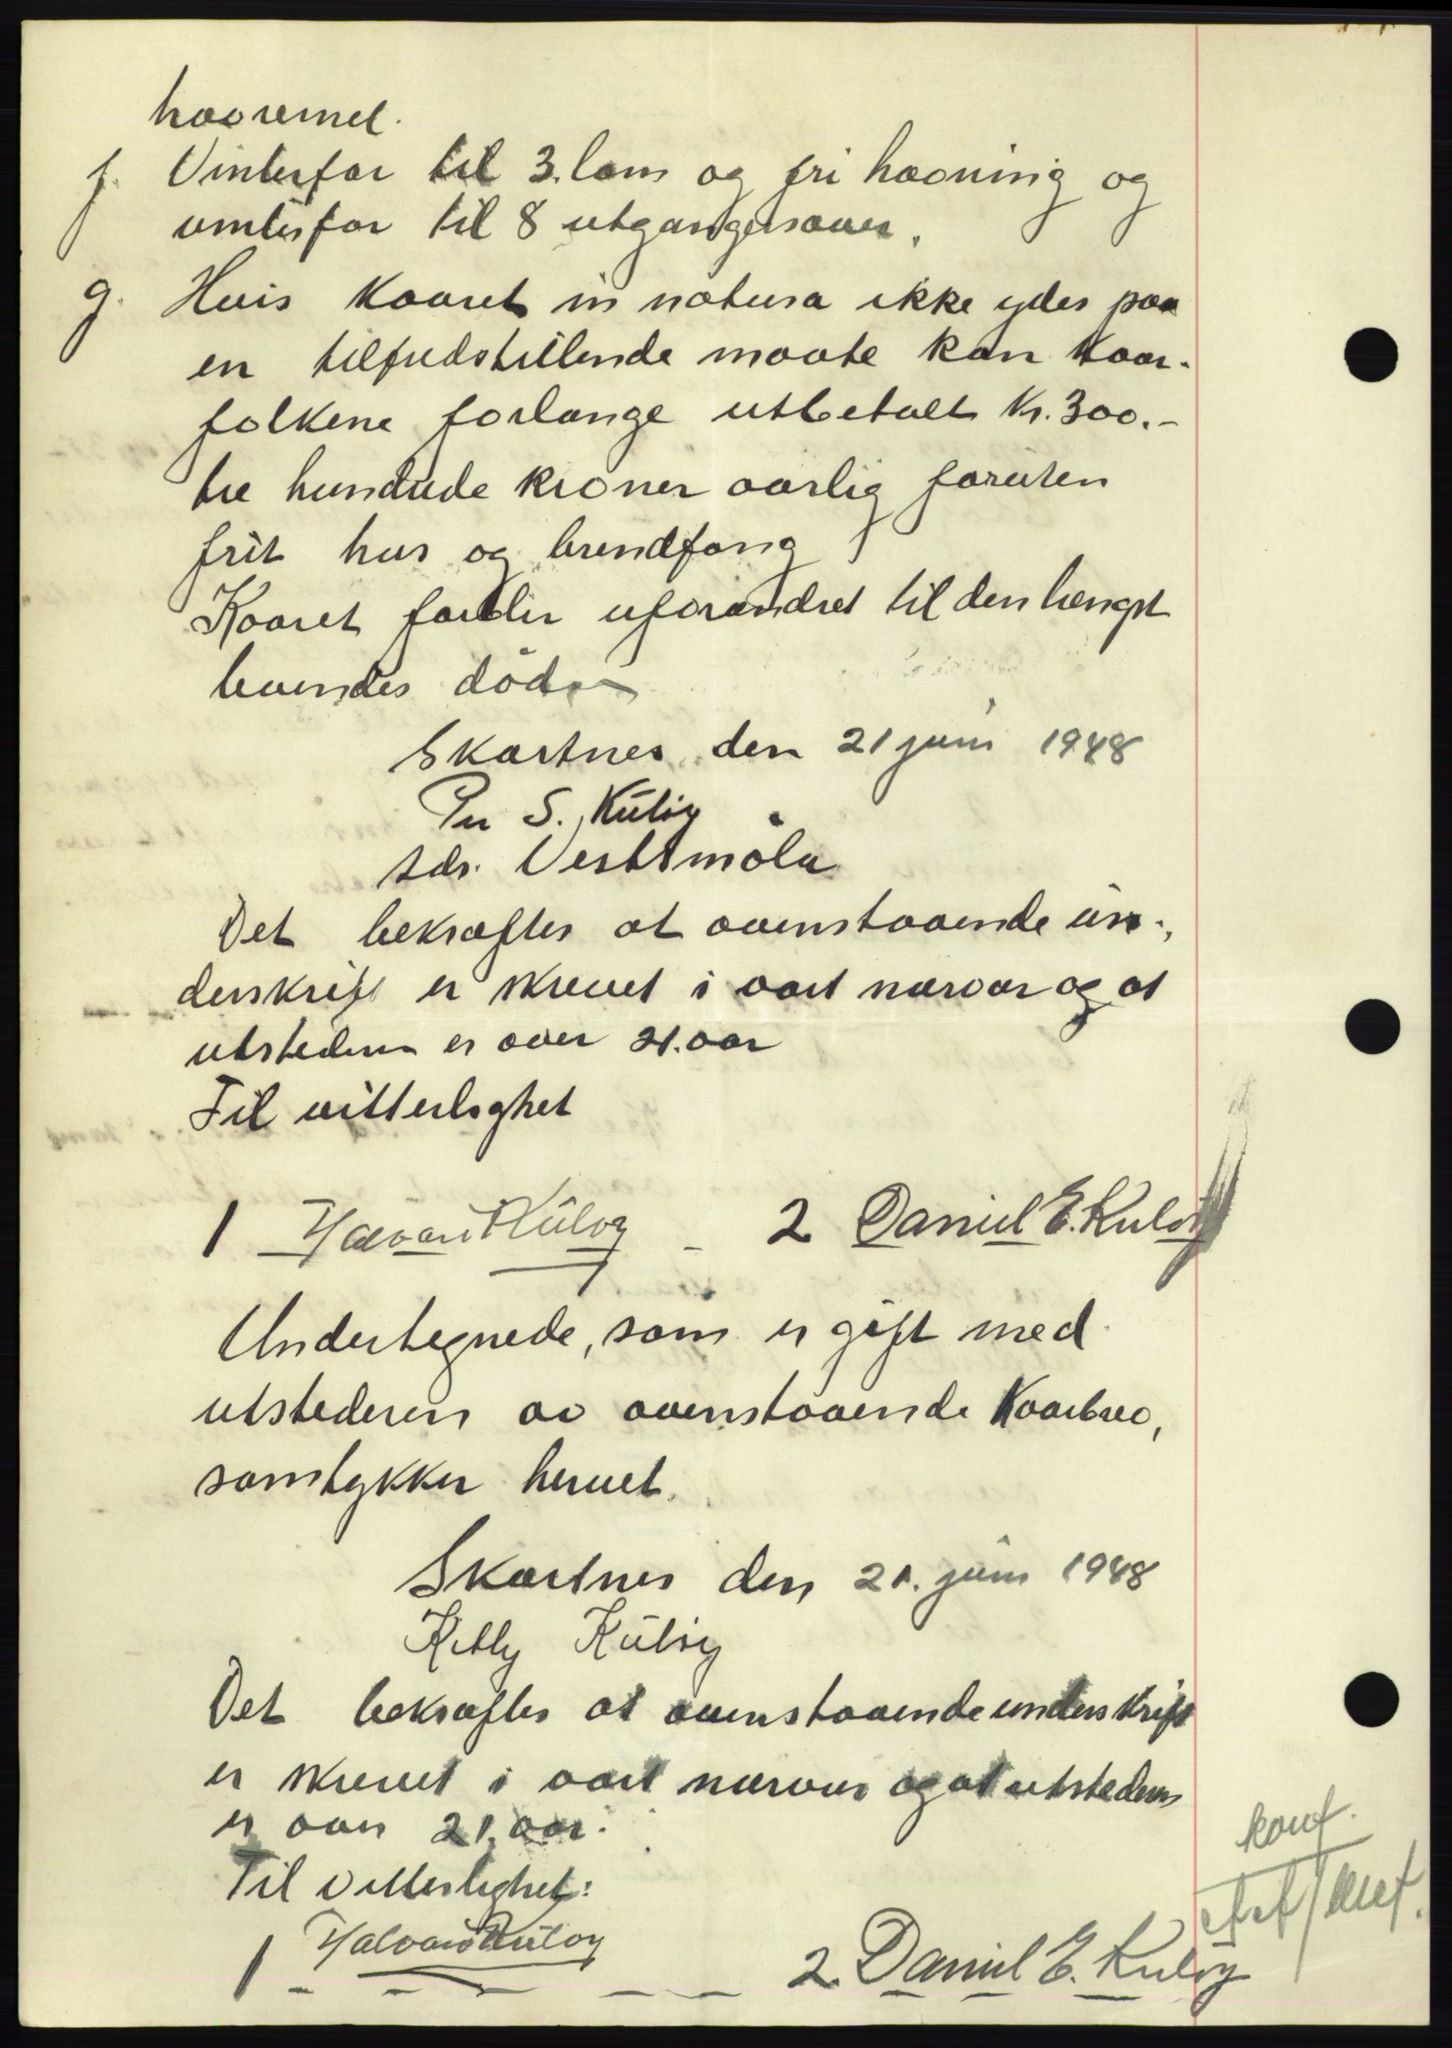 havremel.
f. Vinterfor til 3. lam og fri havning og
vinterfor til 8 utgangersauer.
g. Hvis kaaret in natura ikke ydes paa
en tilfredstillende maate kan kaar-
folkene forlange utbetalt kr. 300.-
tre hundrede kroner aarlig foruten
frit hus og brendfang
Kaaret forblir uforandret til den lengst
levendes död
Skartnes den 21 juni 1948
Per S. Kulöy
Vestmöla
Det bekræftes at ovenstaaende un-
derskrift er skrevet i vort nærvær og at
utstederen er over 21. aar
Til vitterlighet
1 Halvard Kulöy 2 Daniel E. Kulöy
Undertegnede, som er gift med
utstederen av ovenstaaende kaarbrev,
samtykker hervet.
Skartnes den 21. juni 1948
Kitty Kulöy
Det bekræftes at ovenstaaende underskrift
er skrevet i vort nærvær og at utstederen
er over 21. aar.
Til vitterlighet:
1 Halvard Kulöy 2. Daniel E. Kulöy
konf.